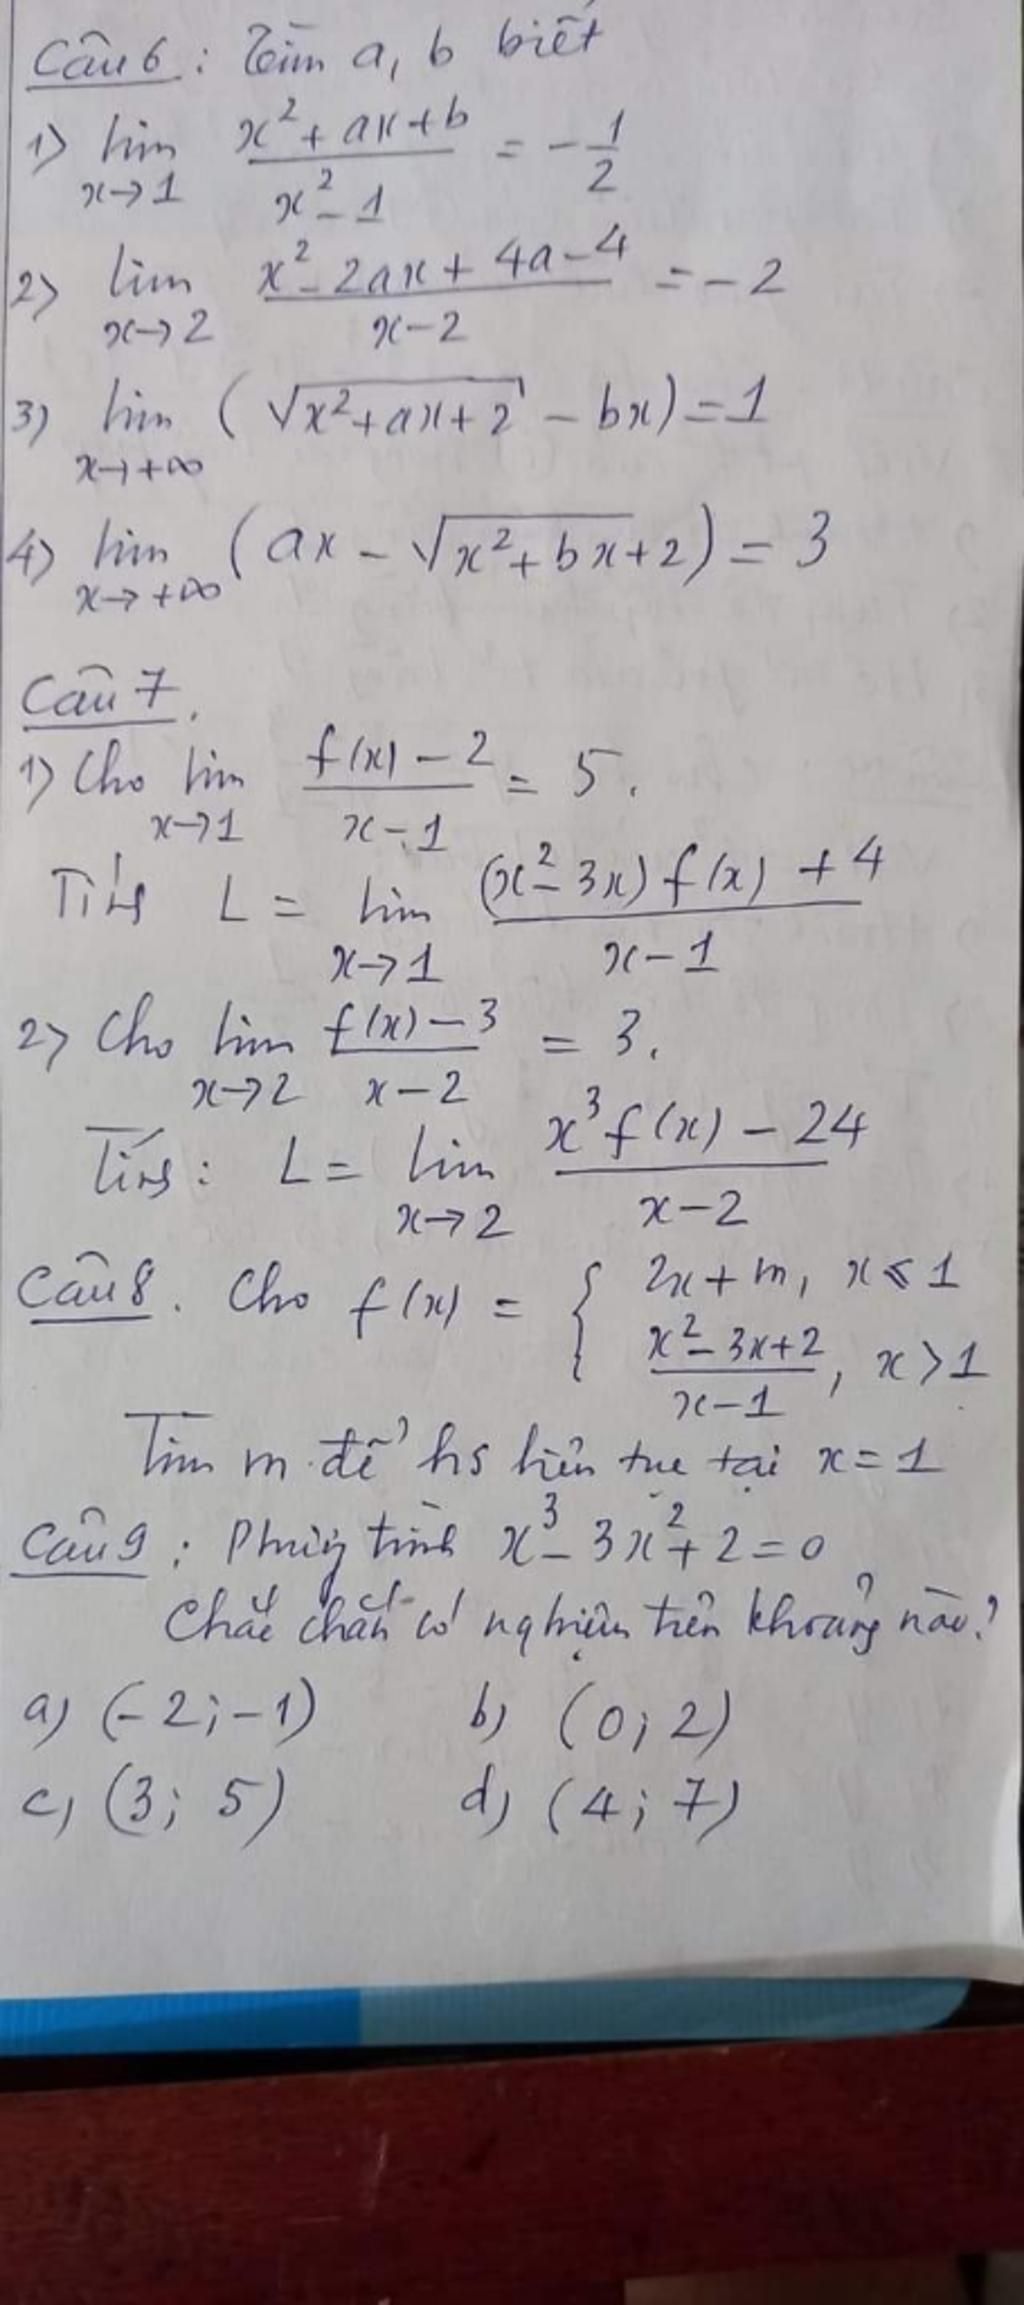 Câu 6 : Tìm a, b biết
1) lim x→1 (x² + ax + b)/(x² - 1) = - 1/2
2) lim x→2 (x² - 2ax + 4a - 4)/(x - 2) = - 2
3) lim x→+∞ (√(x² + ax + 2) - bx) = 1
4) lim x→+∞ (ax - √(x² + bx + 2)) = 3
Câu 7.
1) Cho lim x→1 (f(x) - 2)/(x - 1) = 5.
Tính L = lim x→1 ((x² - 3x) f(x) + 4)/(x - 1)
2) Cho lim x→2 (f(x) - 3)/(x - 2) = 3.
Tính : L = lim x→2 (x³ f(x) - 24)/(x - 2)
Câu 8. Cho f(x) = { 2x + m, x ⩽ 1
(x² - 3x + 2)/(x - 1), x > 1
Tìm m để hs liên tục tại x = 1
Câu 9 : Phương trình x³ - 3x² + 2 = 0
Chắc chắn có nghiệm trên khoảng nào?
a) (-2; -1) b) (0; 2)
c) (3; 5) d) (4; 7)